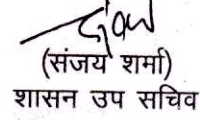 (संजय शर्मा)
शासन उप सचिव